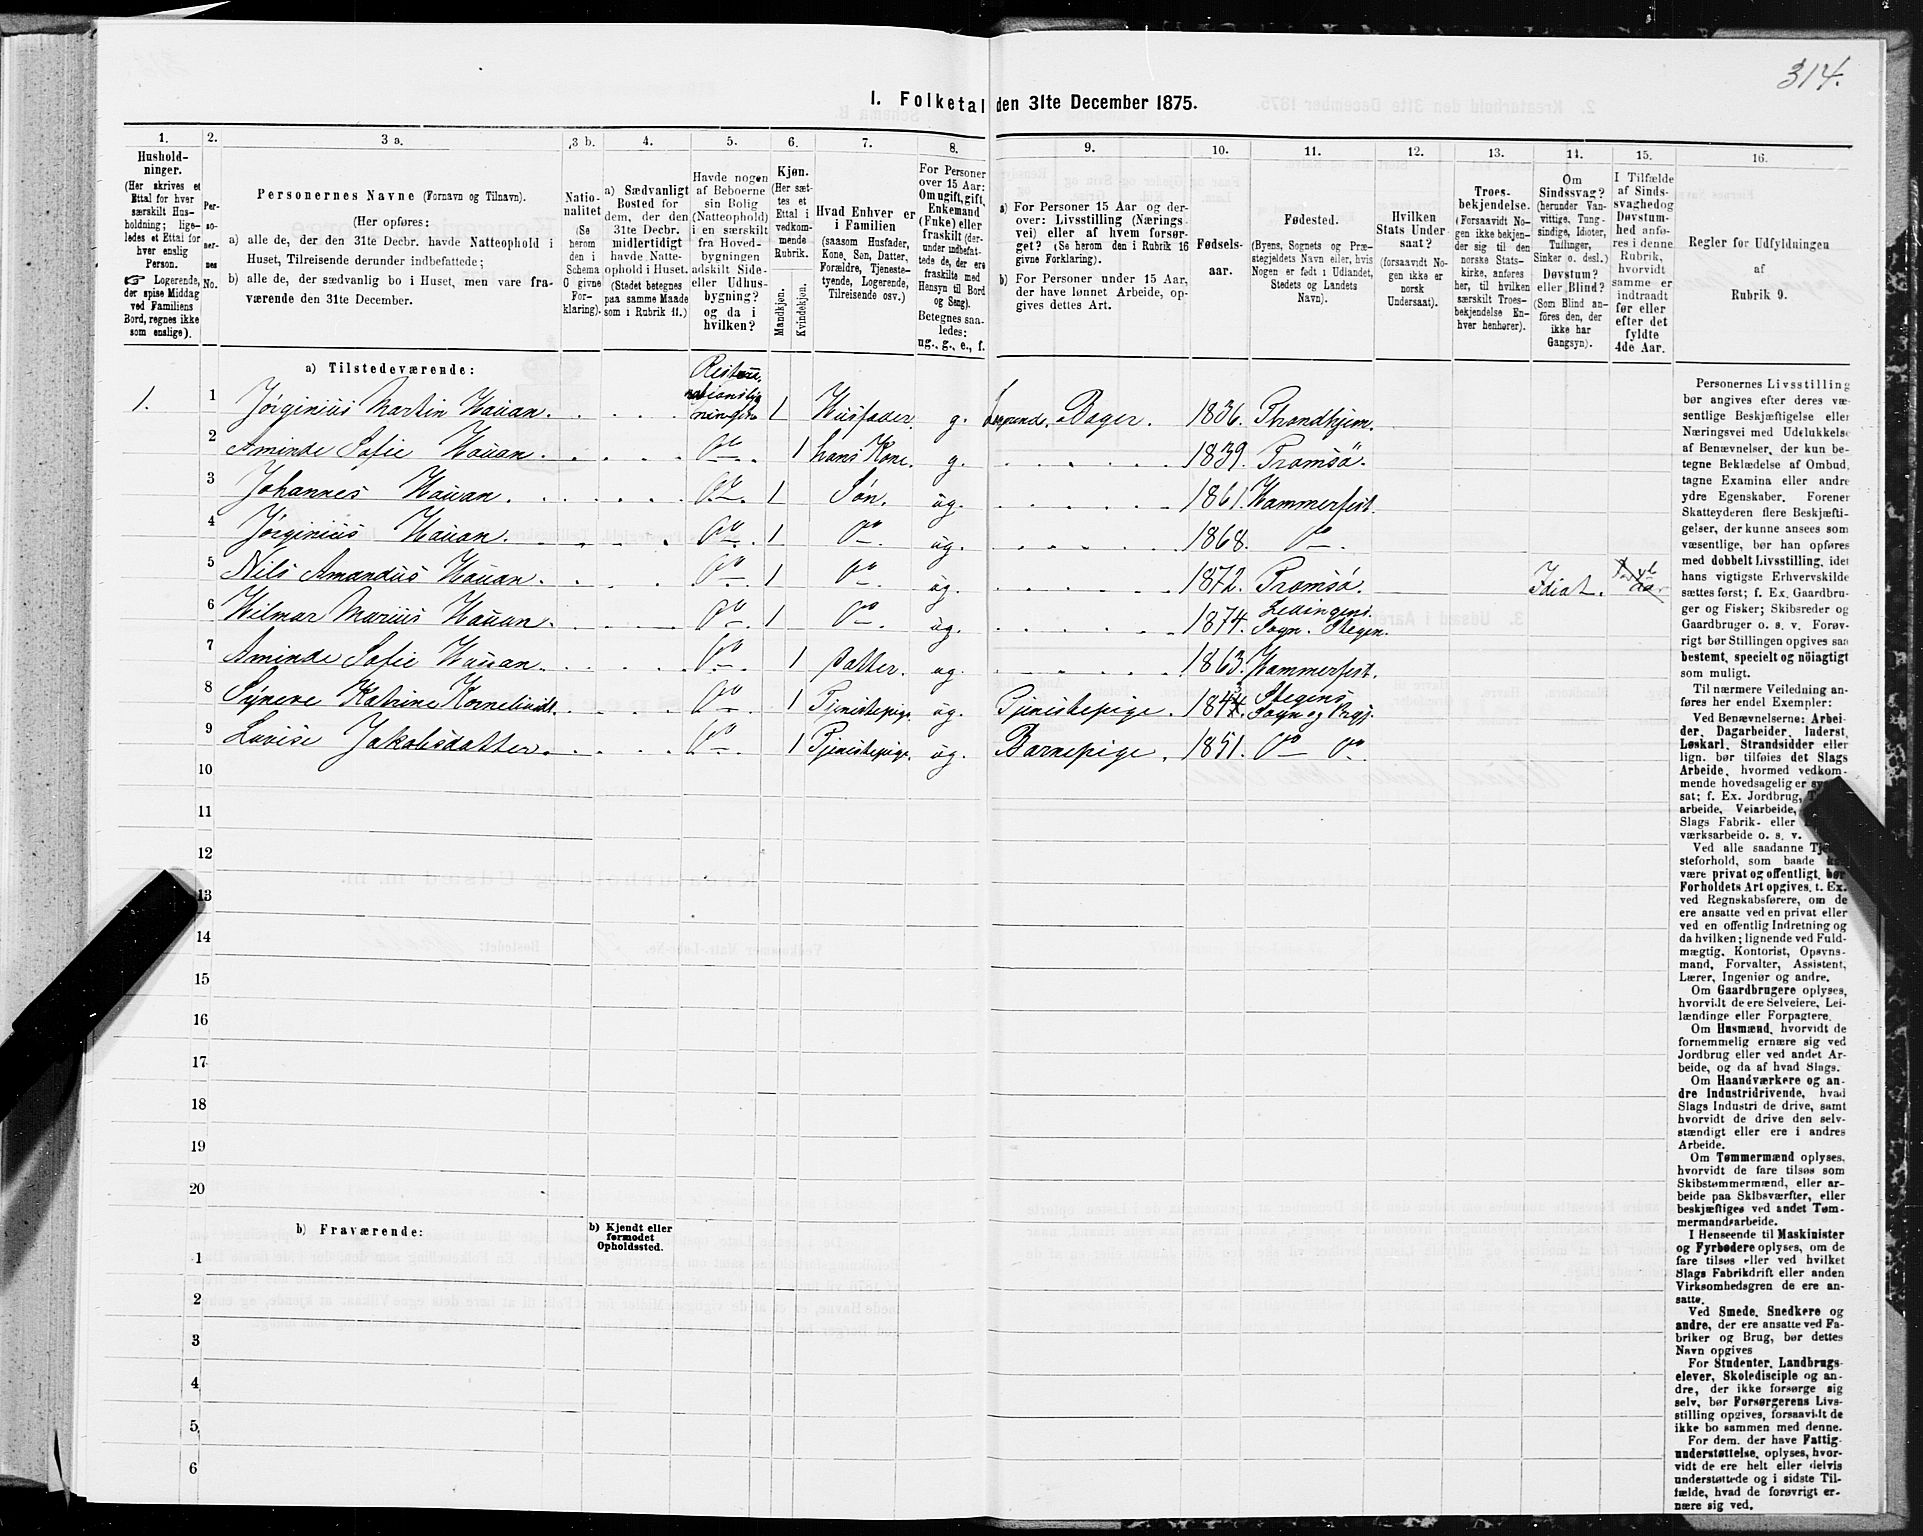 314.
1. Folketal den 31te December 1875.
1. 2. 3 a. 3 b. 4. 5. 6. 7. 8. 9. 10. 11. 12. 13. 14. 15. 16.
Hushold-
ninger.
(Her skrives et
Ettal for hver
særskilt Hus-
holdning; lige-
ledes et Ettal for
hver enslig
Person.
Logerende,
der spise Middag
ved Familiens
Bord, regnes ikke
som enslige).
Per-
so-
ner-
nes
No.
Personernes Navne (Fornavn og Tilnavn).
(Her opføres:
a) alle de, der den 31te Decbr. havde Natteophold i
Huset, Tilreisende derunder indbefattede;
b) alle de, der sædvanlig bo i Huset, men vare fra-
værende den 31te December.
Natio-
nalitet
(Se
herom
den i
Schema
O givne
For-
klaring).
a) Sædvanligt
Bosted for
dem, der den
31te Decbr.
midlertidigt
havde Natte-
ophold i Huset.
(Stedet betegnes
paa samme Maade
som i Rubrik 11.)
Havde nogen
af Beboerne
sin Bolig
(Natteophold)
i en særskilt
fra Hoved-
bygningen
adskilt Side-
eller Udhus-
bygning?
og da i
hvilken?
Kjøn.
(Her sæt-
tes et
Ettal i
vedkom-
mende
Rubrik.
Mandkjøn.
Kvindekjøn.
Hvad Enhver er
i Familien
(saasom Husfader,
Kone, Søn, Datter,
Forældre, Tjeneste-
tyende, Logerende,
Tilreisende osv.)
For Personer
over 15 Aar:
Om ugift, gift,
Enkemand
(Enke) eller
fraskilt (der-
under indbefat-
tede de, der ere
fraskilte med
Hensyn til Bord
og Seng).
Betegnes saa-
ledes:
ug., g., e., f.
a) For Personer 15 Aar og der-
over: Livsstilling (Nærings-
vei) eller af hvem forsør-
get? (Se herom den i Rubrik 16
givne Forklaring).
b) For Personer under 15 Aar,
der have lønnet Arbeide, op-
gives dettes Art.
Fødsels-
aar.
Fødested.
(Byens, Sognets og Præ-
stegjeldets Navn eller, hvis
Nogen er født i Udlandet,
Stedets og Landets
Navn).
Hvilken
Stats Under-
saat?
(forsaavidt No-
gen ikke er
norsk
Undersaat).
Troes-
bekjendelse.
(Forsaavidt No-
gen ikke bekjen-
der sig til den
norske Stats-
kirke, anføres
her, til hvilken
særskilt Troes-
bekjendelse En-
hver henhører).
Om
Sindssvag?
(herunder Van-
vittige, Tung-
sindige, Idioter,
Tullinger,
Sinker o. desl.)
Døvstum?
eller Blind?
(Som Blind an-
føres den, der
ikke har
Gangsyn).
I Tilfælde
af Sinds-
svaghed og
Døvstum-
hed anfø-
res i denne
Rubrik,
hvorvidt
samme er
indtraadt
før eller
efter det
fyldte
4de Aar.
Regler for Udfyldningen
af
Rubrik 9.
a) Tilstedeværende:
1. 1 Jørginius Martin Hauan. 1 Husfader. g. Bager. 1836. Throndhjem.
2 Aminde Sofie Hauan. Do 1 hans Kone. g. 1839. Tromsø.
3 Johannes Hauan. Do 1 Søn. ug. 1861. Hammerfest.
4 Jørginius Hauan. Do 1 Do ug. 1868. Do
5 Nils Amandus Hauan. Do 1 Do ug. 1872. Tromsø. Idiot.
6 Hilmar Marius Hauan. Do 1 Do ug. 1874. Lødingens Sogn. Stegen.
7 Aminde Sofie Hauan. Do 1 Datter. ug. 1863. Hammerfest.
8 Syneve Katrine Kornelinsdt. Do 1 Tjenistepige. ug. Tjenistepige. Stegens Sogn og Prgj.
9 Lovise Jakobsdatter. Do 1 Tjenistepige. ug. Barnepige. 1851. Do Do
10
11
12
13
14
15
16
17
18
19
20
b) Fraværende:
b) Kjendt eller
formodet
Opholdssted.
1
2
3
4
5
6
Personernes Livsstilling
bør angives efter deres væ-
sentlige Beskjæftigelse eller
Næringsvei med Udelukkelse
af Benævnelser, der kun be-
tegne Beklædelse af Ombud,
tagne Examina eller andre
ydre Egenskaber. Forener
Skatteyderen flere Beskjæfti-
gelser, der kunne ansees som
væsentlige, bør han opføres
med dobbelt Livsstilling, idet
hans vigtigste Erhvervskilde
sættes først; f. Ex. Gaardbru-
ger og Fisker; Skibsreder og
Gaardbruger o. s. v. Forøv-
rigt bør Stillingen opgives saa
bestemt, specielt og nöiagtigt
som muligt.
Til nærmere Veiledning an-
føres her endel Exempler:
Ved Benævnelserne: Arbei-
der, Dagarbeider, Inderst,
Løskarl, Strandsidder eller
lign. bør tilføies det Slags
Arbeide, hvormed vedkom-
mende hovedsagelig er
sat; f. Ex. Jordbrug,
arbeide, Veiarbeide,
Slags Fabrik- eller
værksarbeide o. s. v.
Ved alle saadanne
steforhold, som baade
være privat og offentligt, bør
Forholdets Art opgives, t. Ex.
ved Regnskabsførere, om de
ere ansatte ved en privat eller
ved en offentlig Indretning og
da hvilken; lignende ved Fuld-
mægtig, Kontorist, Opsyns-
mand, Forvalter, Assistent,
Lærer, Ingeniør og andre.
Om Gaardbrugere oplyses,
hvorvidt de ere Selveiere, Lei-
lændinge eller Forpagtere.
Om Husmænd, hvorvidt de
fornemmelig ernære sig ved
Jordbrug eller ved andet Ar-
beide, og da af hvad Slags.
Om Haandværkere og an-
dre Industridrivende, hvad
Slags Industri de drive, samt
hvorvidt de drive den selv-
stændigt eller ere i andres
Arbeide.
Om Tømmermænd oplyses,
hvorvidt de fare tilsøs som
Skibstømmermænd, eller ar-
beide paa Skibsværfter, eller
beskjæftiges ved andet Tøm-
mermandsarbeide.
I Henseende til Maskinister
og Fyrbødere oplyses, om de
fare tilsøs eller ved hvilket
Slags Fabrikdrift eller anden
Virksomhedsgren de ere an-
satte.
Ved Smede, Snedkere og
andre, der ere ansatte ved Fa-
briker og Brug, bør dettes
Navn opgives
For Studenter, Landbrugs-
elever, Skoledisciple og an-
dre, der ikke forsørge sig
selv, bør Forsørgerens Livs-
stilling opgives, forsaavidt de
ikke bo sammen med denne.
For dem, der have Fattig-
understøttelse, oplyses, hvor-
vidt de ere helt eller delvis
understøttede og i sidste Til-
fælde, hvad de forøvrigt er-
nære sig ved.